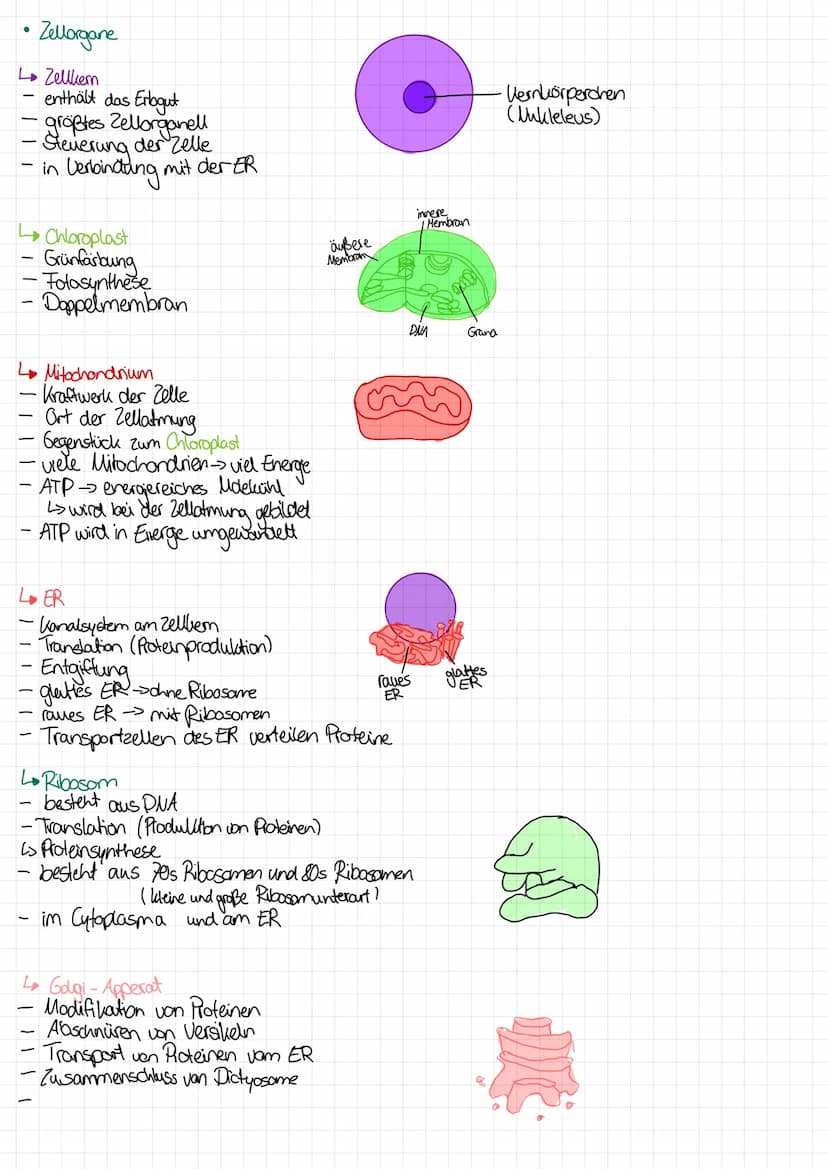 • Zellorgane
↳ Zellkern
- enthält das Erbgut
- größtes Zellorganell
- Steuerung der Zelle
- in Verbindung mit der ER
Kernkörperchen
(Nukleleus)
↳ Chloroplast
- Grünfärbung
- Fotosynthese
- Doppelmembran
äußere
Membran
innere
Membran
DNA
Grana
↳ Mitochondrium
- Kraftwerk der Zelle
- Ort der Zellatmung
- Gegenstück zum Chloroplast
- viele Mitochondrien → viel Energie
- ATP → energiereiches Molekühl
↳ wird bei der Zellatmung gebildet
- ATP wird in Energe umgewandelt
↳ ER
- Kanalsystem am Zellkern
- Translation (Proteinproduktion)
- Entgiftung
- glattes ER → ohne Ribosome
- raues ER → mit Ribosomen
- Transportzellen des ER verteilen Proteine
raues
ER
glattes
ER
↳ Ribosom
- besteht aus DNA
- Translation (Produktion von Proteinen)
↳ Proteinsynthese
- besteht aus 70s Ribosomen und 80s Ribosomen
(kleine und große Ribosomunterart)
- im Cytoplasma und am ER
↳ Golgi-Apperat
- Modifikation von Proteinen
- Abschnüren von Versikeln
- Transport von Proteinen vom ER
- Zusammenschluss von Dictyosome
-